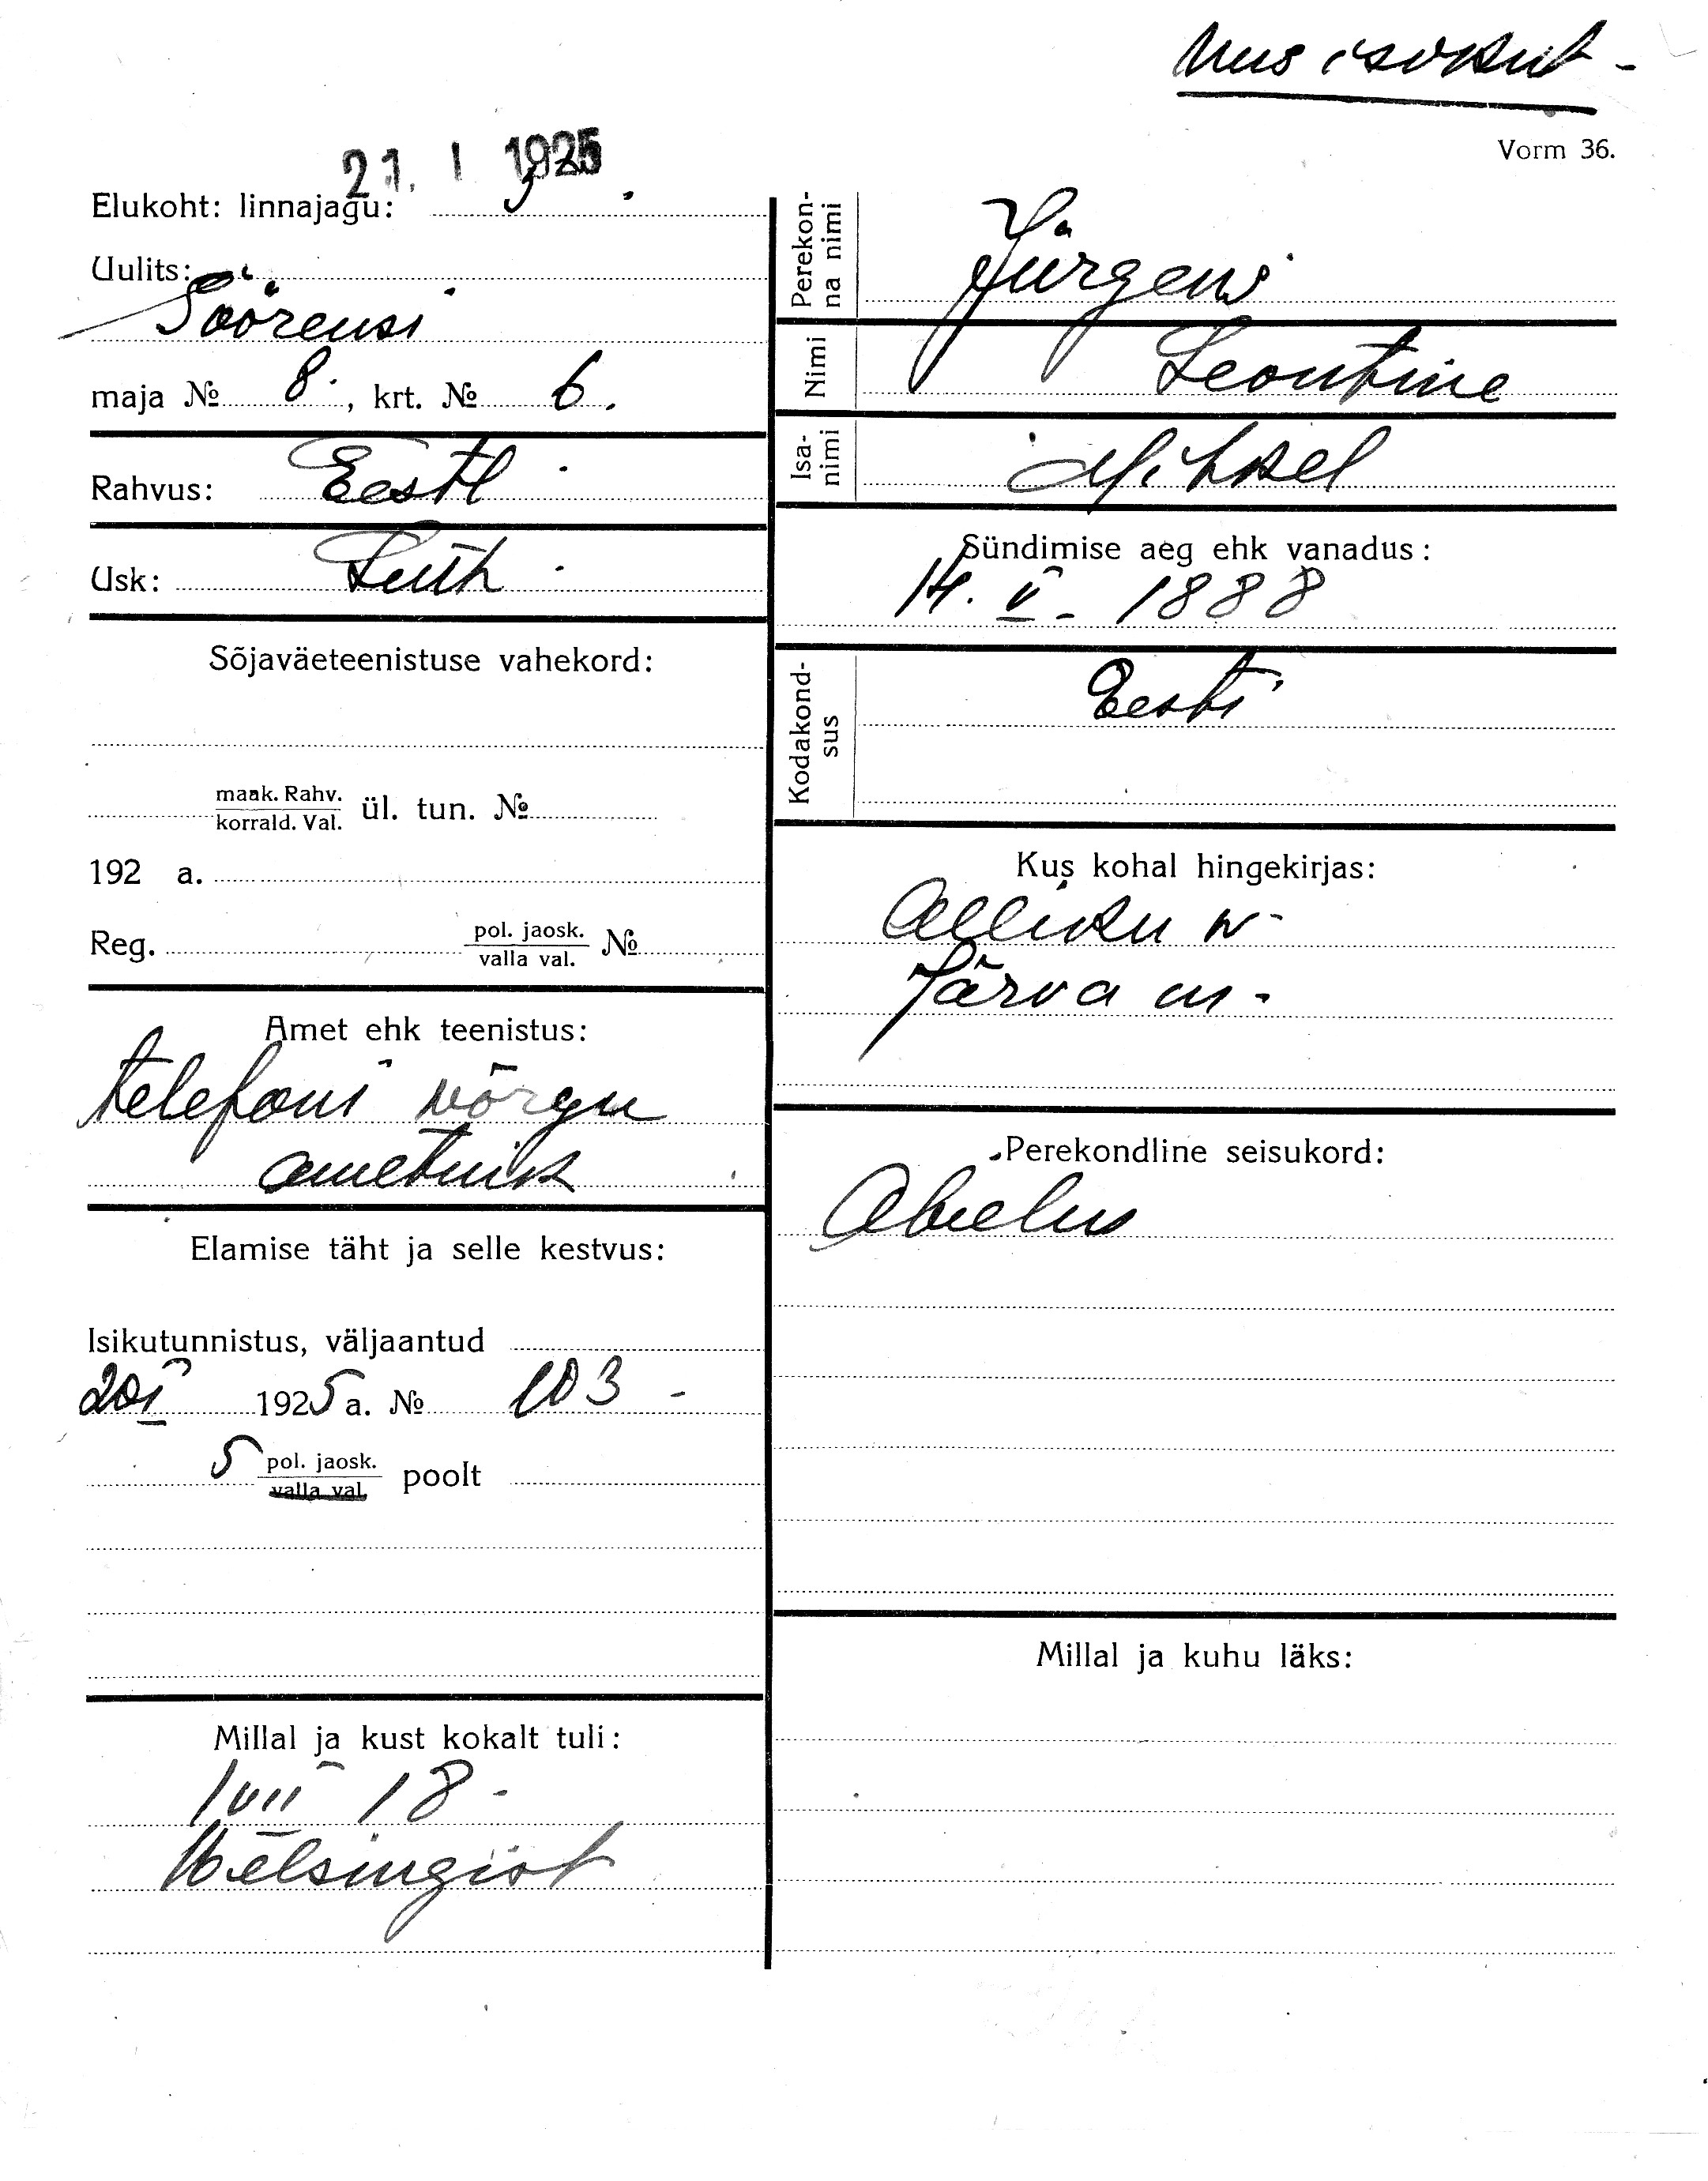 Uus isikut-
Vorm 36.
21. I 1925
Elukoht: linnajagu: 5.
Uulits:
Söörensi
maja № 8., krt. № 6.
Rahvus: Eestl.
Usk: Luth.
Sõjaväeteenistuse vahekord:
maak. Rahv.
korrald. Val. ül. tun. №
192 a.
Reg. pol. jaosk.
valla val. №
Amet ehk teenistus:
telefoni võrgu
ametnik
Elamise täht ja selle kestvus:
Isikutunnistus, väljaantud
20 I 1925 a. № 103-
5 pol. jaosk.
valla val. poolt
Millal ja kust kokalt tuli:
1 VII 18-
Helsingist
Perekon-
na nimi Jürgens
Nimi Leontine
Isa-
nimi Mihkel
Sündimise aeg ehk vanadus:
14. V - 1888
Kodakond-
sus Eesti
Kus kohal hingekirjas:
Alliku w-
Järva m-
Perekondline seisukord:
Abielus
Millal ja kuhu läks: